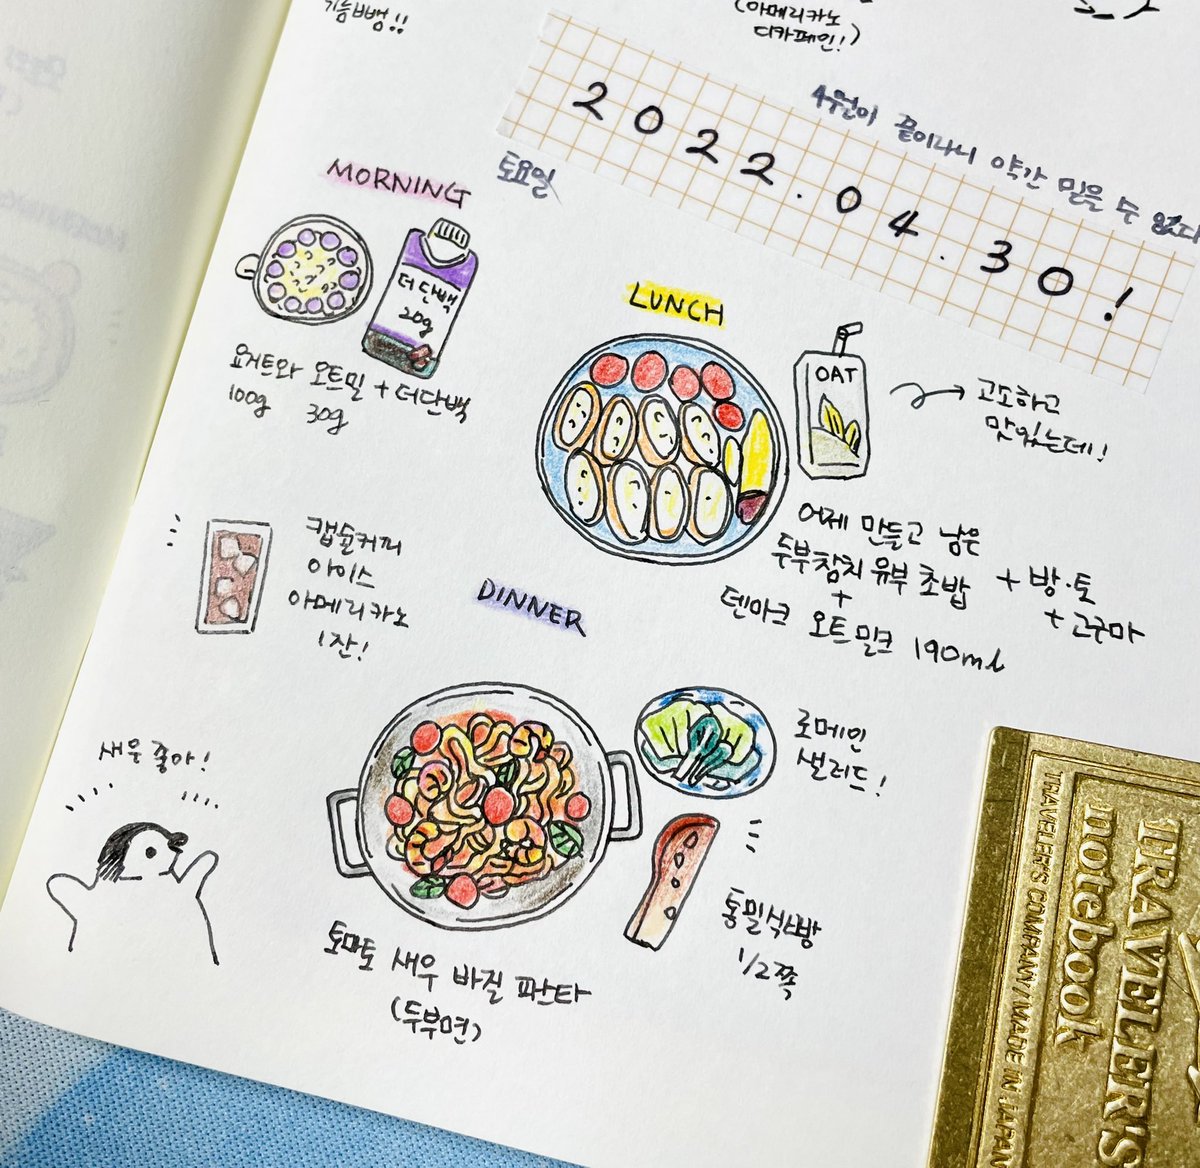 기능빵!!
(아메리카노
디카페인!)
2022.04.30!
4월이 끝이라니 약간 믿을 수 없다
토요일
MORNING
더단백
20g
요거트와 오트밀 + 더단백
100g 30g
LUNCH
OAT
고소하고
맛있는데!
어제 만들고 남은
두부참치유부초밥 + 방·토
+ + 고구마
덴마크 오트밀크 190ml
캡슐커피
아이스
아메리카노
1잔!
DINNER
로메인
샐러드!
통밀식빵
1/2쪽
토마토 새우 바질 파스타
(두부면)
새우 좋아!
TRAVELER'S
notebook
TRAVELER'S COMPANY / MADE IN JAPAN